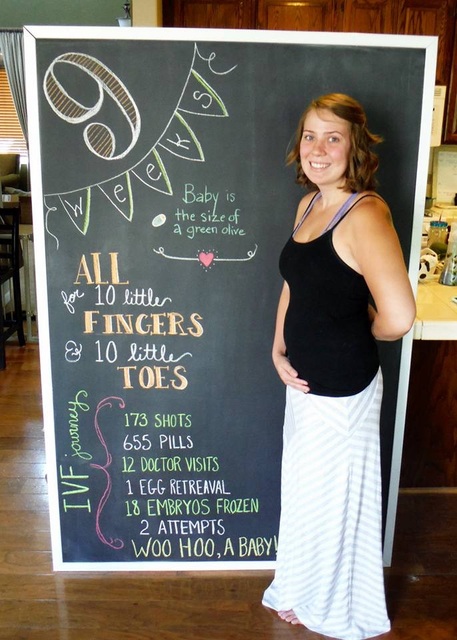 9
weeks
Baby is
the size of
a green olive
ALL
for 10 little
FINGERS
& 10 little
TOES
IVF journey
173 SHOTS
655 PILLS
12 DOCTOR VISITS
1 EGG RETREAVAL
18 EMBRYOS FROZEN
2 ATTEMPTS
WOO HOO, A BABY!